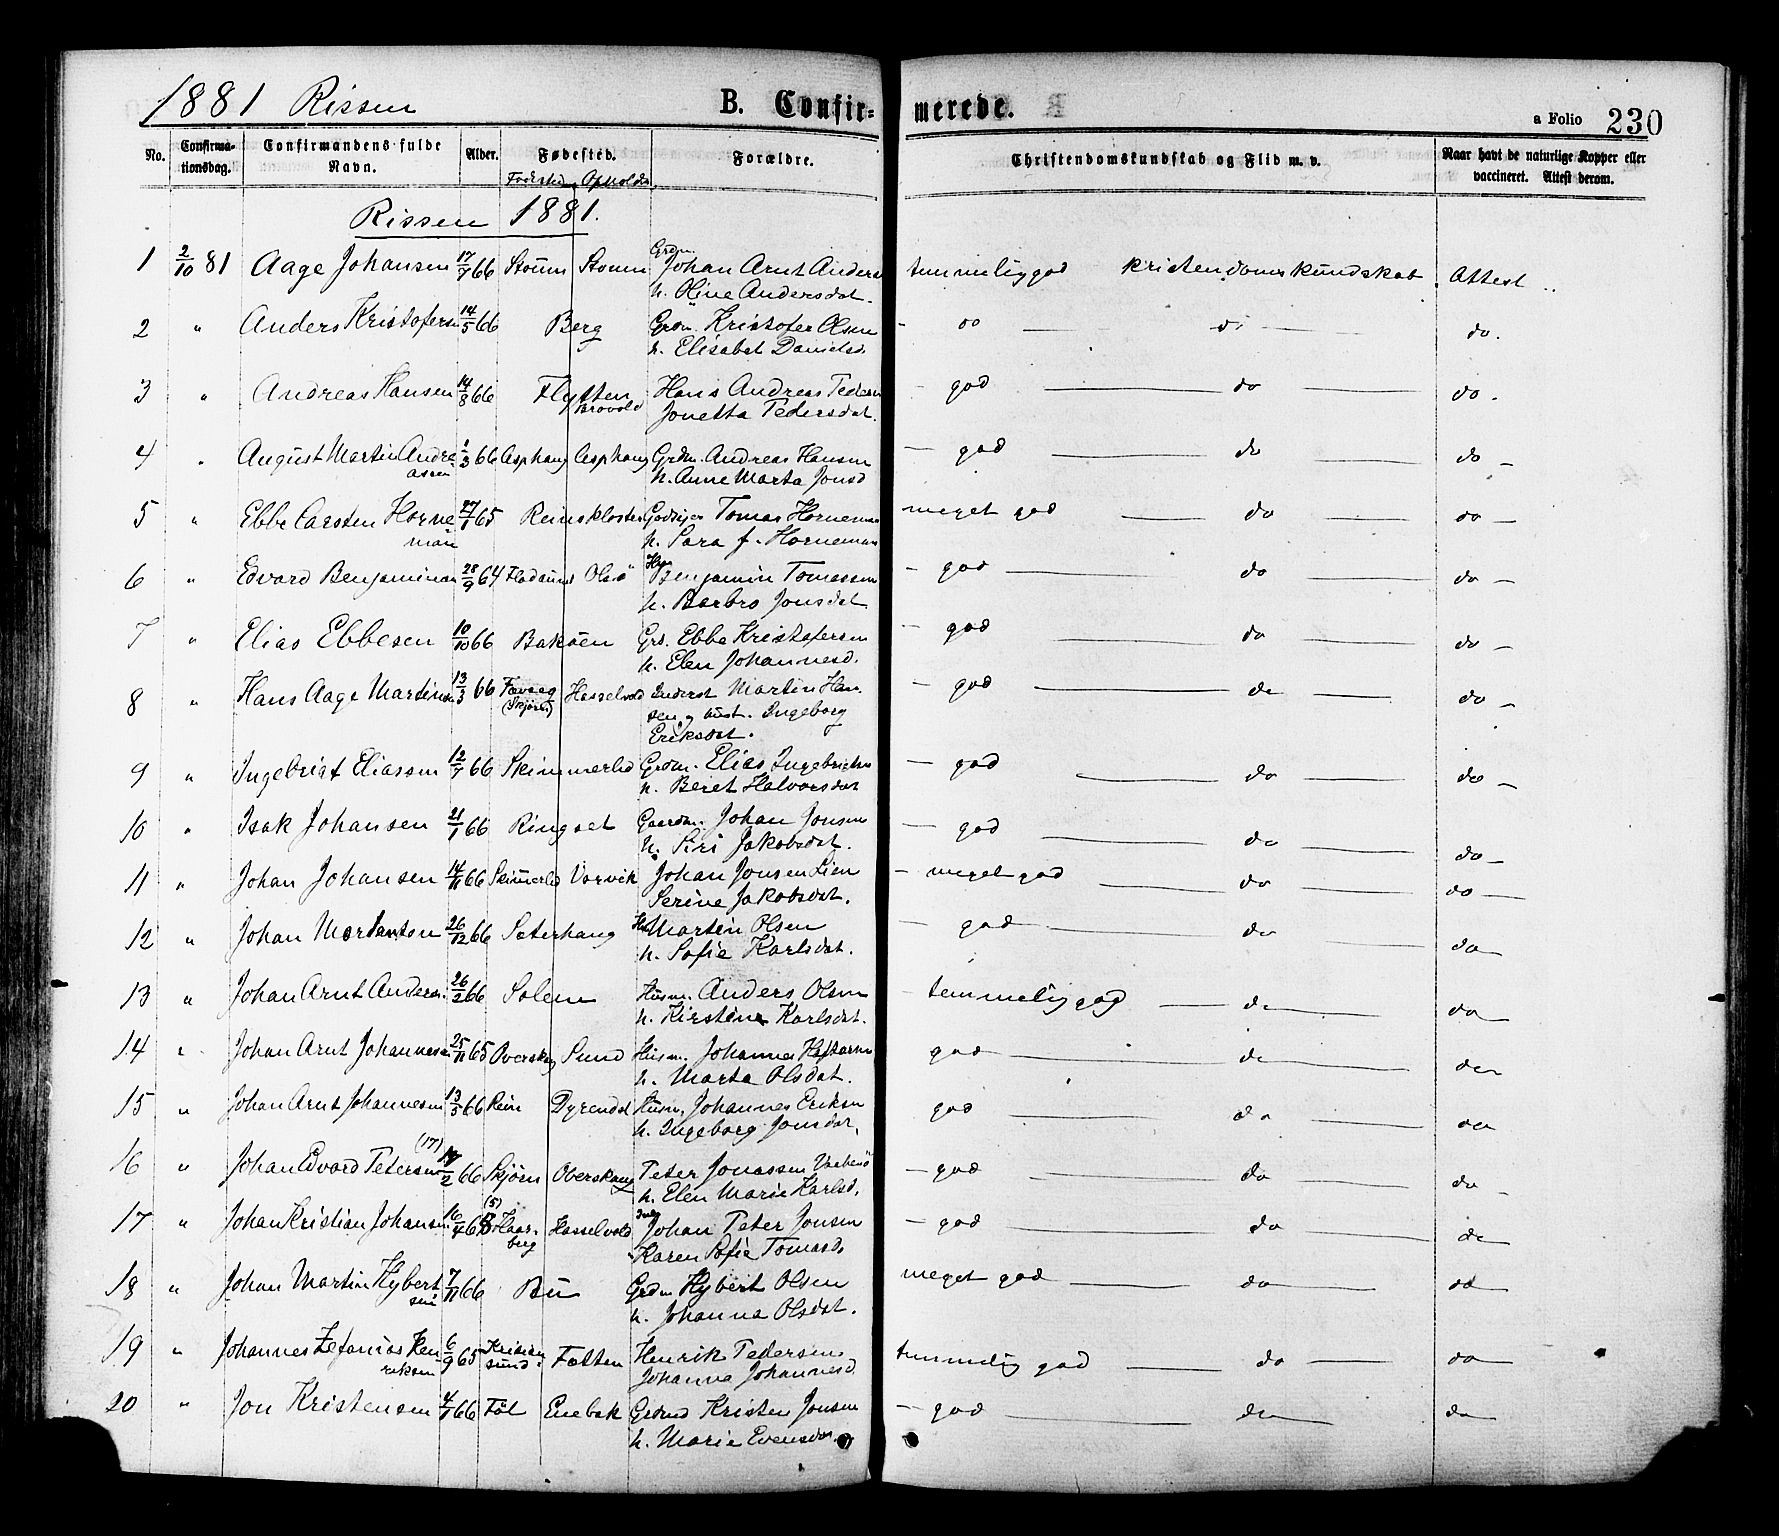 1881 Rissen
B. Confir-
merede.
a Folio 230
No.
Confirma-
tionsdag.
Confirmandens fulde
Navn.
Alder.
Fødested.
Fødested Opholds
Forældre.
Christendomskundskab og Flid m. v.
Naar havt de naturlige Kopper eller
vaccineret. Attest derom.
Rissen 1881.
Grdm.
1 2/10 81 Aage Johansen 17/7 66 Stoum Stoum Johan Arnt Anders temmelig god kristendomskundskab Attest
h. Oline Andersdat.
2 " Anders Kristofersen 14/5 66 Berg Grdm. Kristofer Olsen - do do do.
h. Elisabet Danielsd.
3 " Andreas Hansen 14/8 66 Flytten Hans Andreas Peders - god do do.
Brovold Jonetta Pedersdat.
4 " August Martin Andre 1/3 66 Asphaug Asphaug Grdm. Andreas Hansen - god do do -
asen h. Anne Marta Jonsd
5 " Ebbe Carsten Horne 27/1 65 Reinskloster Godseier Tomas Horneman meget god do do -
man h. Sara f. Horneman
6 " Edvard Benjaminsen 28/9 64 Flodsund Olsö Benjamin Tomassen - god do do -
h. Barbro Jonsdat
7 " Elias Ebbesen 10/10 66 Bakøen Grd. Ebbe Kristofersen - god do do -
h. Elen Johannesd.
8 " Hans Aage Martinsen 13/3 66 Hasselvold Inderst Martin Han - god do do -
(Skjørn) sen og hust. Ingeborg
Eriksdat.
9 " Ingebrigt Eliassen 12/7 66 Skimmerlid Grdm. Elias Ingebrigtsen - god do do -
h. Beret Halvorsdat
10 " Isak Johansen 21/1 66 Ringset Gaardm. Johan Jonsen - god do do -
h. Siri Jakobsdat.
11 " Johan Johansen 14/11 66 Skimerlid Vorvik Johan Jonsen Lien - meget god do do -
Serine Jakobsdat.
12 " Johan Mortenson 26/12 66 Seterhaug Martin Olsen - god do do
h. Sofie Karlsdat.
13 " Johan Arnt Anders. 26/2 66 Solem Husm. Anders Olsen - temmelig god do do
h. Kirstine Karlsdat.
14 " Johan Arnt Johannesen 25/11 65 Overskog Sund Husm. Johannes god do do
h. Marta Olsdat.
15 " Johan Arnt Johannesen 13/5 66 Rein Dyrendal Husm. Johannes Eriksen god do do
h. Ingeborg Jonsdat.
(17)
16 " Johan Edvard Petersen 17/2 66 Skjørn Oberskaug Peter Jonassen - god do do -
h. Elen Marie Karlsd.
(5)
17 " Johan Kristian Johansen 16/4 65 Haar- Hasselvold Johan Peter Jonsen - god do do
berg Karen Sofie Tomasd.
18 " Johan Martin Hybert 7/11 66 Bu Grdm Hybert Olsen meget god do do
sen h. Johanna Olsdat.
19 " Johannes Zefanias Hen 6/9 65 Kristian Falten Henrik Pedersen temmelig god do do
riksen sund. Johanna Johannesd
20 " Jon Kristensen 4/1 66 Föl Enebak Grdmd Kristen Jonsen - god do do
h. Marie Evensdat.